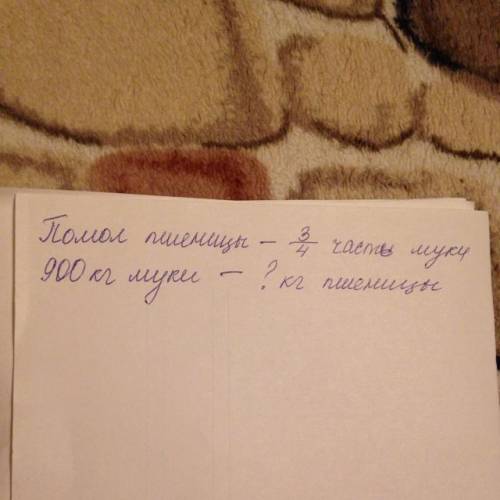 Помол пшеницы — 3/4 часть муки
900 кг муки — ? кг пшеницы